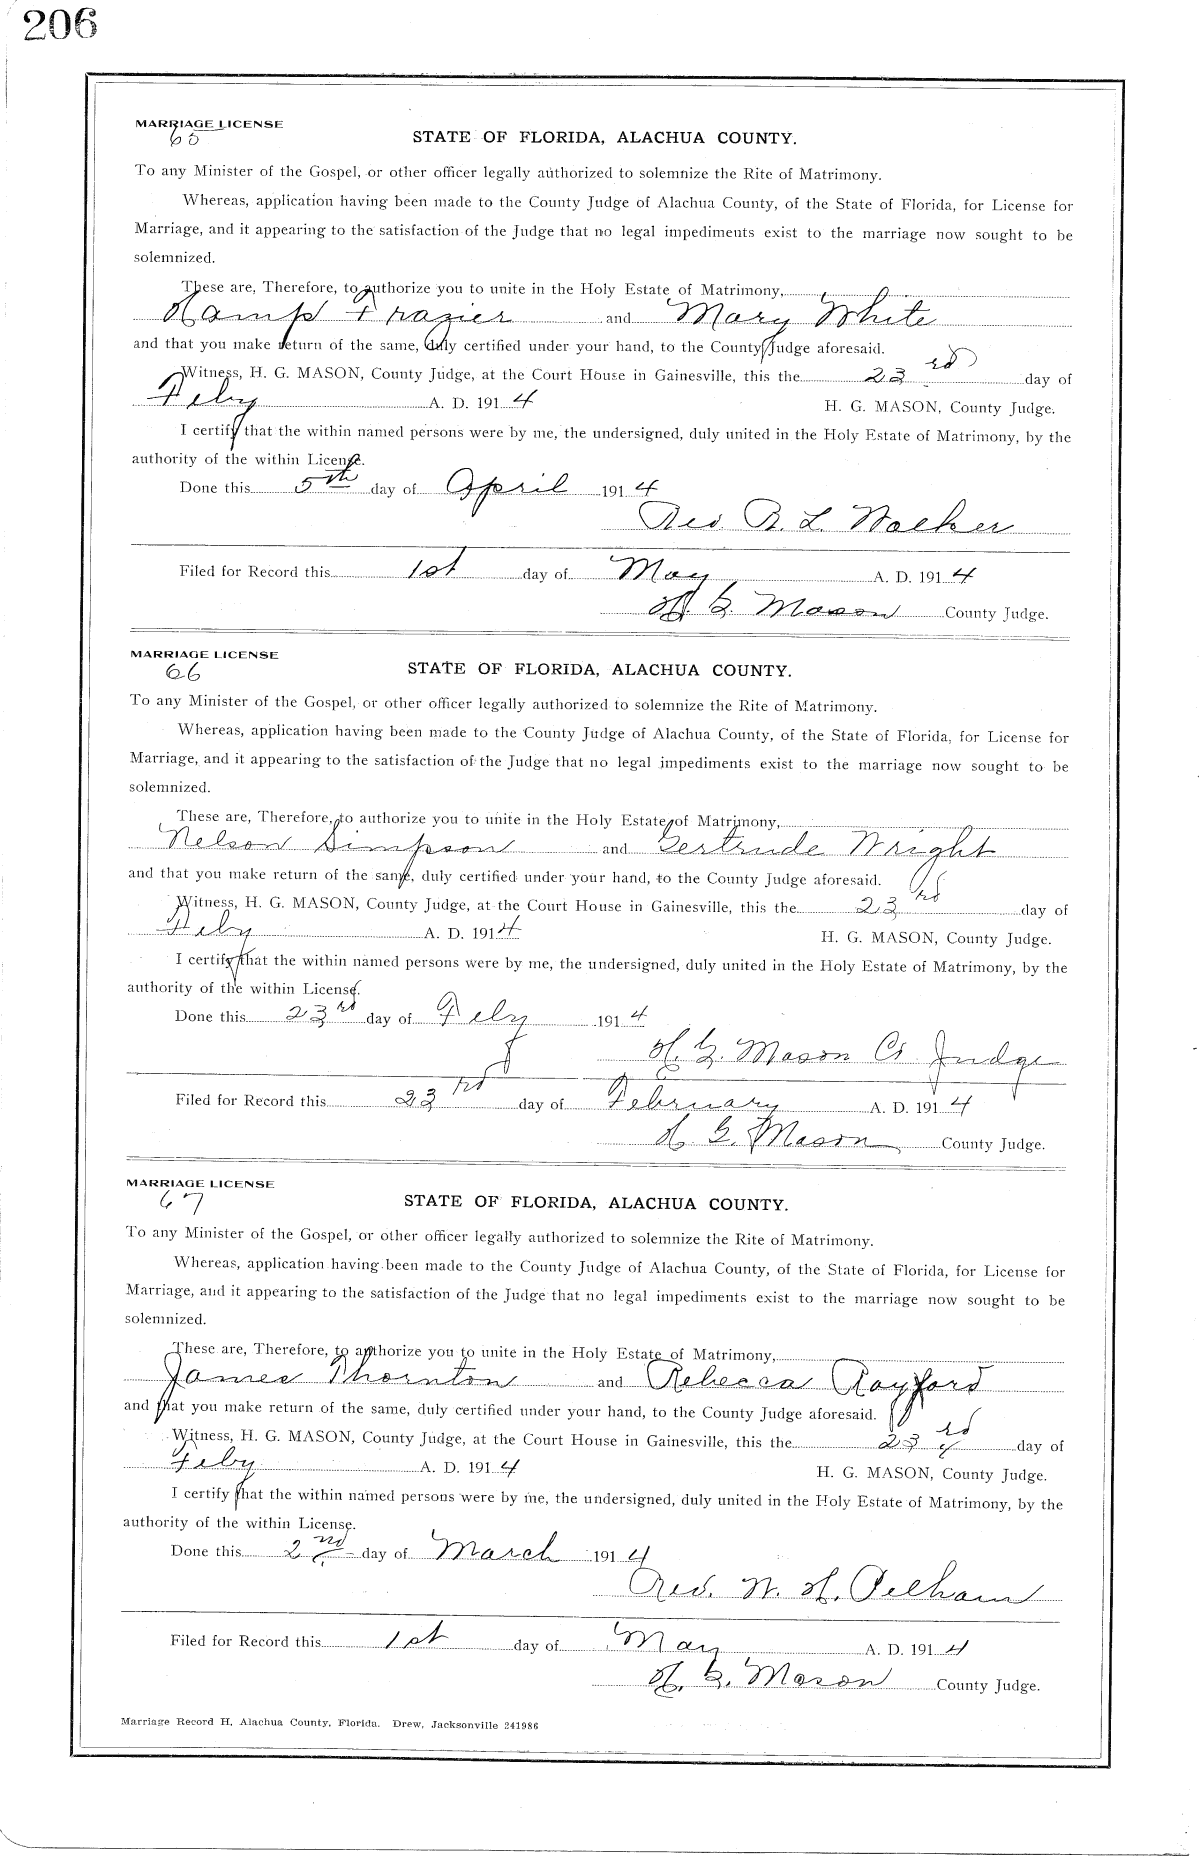 206
MARRIAGE LICENSE
65
STATE OF FLORIDA, ALACHUA COUNTY.
To any Minister of the Gospel, or other officer legally authorized to solemnize the Rite of Matrimony.
Whereas, application having been made to the County Judge of Alachua County, of the State of Florida, for License for
Marriage, and it appearing to the satisfaction of the Judge that no legal impediments exist to the marriage now sought to be
solemnized.
These are, Therefore, to authorize you to unite in the Holy Estate of Matrimony,
Hamp Frazier and Mary White
and that you make return of the same, duly certified under your hand, to the County Judge aforesaid.
Witness, H. G. MASON, County Judge, at the Court House in Gainesville, this the 23rd day of
Feby A. D. 1914 H. G. MASON, County Judge.
I certify that the within named persons were by me, the undersigned, duly united in the Holy Estate of Matrimony, by the
authority of the within License.
Done this 5th day of April 1914
Rev. R. L. Walker
Filed for Record this 1st day of May A. D. 1914
H. G. Mason County Judge.
MARRIAGE LICENSE
66
STATE OF FLORIDA, ALACHUA COUNTY.
To any Minister of the Gospel, or other officer legally authorized to solemnize the Rite of Matrimony.
Whereas, application having been made to the County Judge of Alachua County, of the State of Florida, for License for
Marriage, and it appearing to the satisfaction of the Judge that no legal impediments exist to the marriage now sought to be
solemnized.
These are, Therefore, to authorize you to unite in the Holy Estate of Matrimony,
Nelson Simpson and Gertrude Wright
and that you make return of the same, duly certified under your hand, to the County Judge aforesaid.
Witness, H. G. MASON, County Judge, at the Court House in Gainesville, this the 23rd day of
Feby A. D. 1914 H. G. MASON, County Judge.
I certify that the within named persons were by me, the undersigned, duly united in the Holy Estate of Matrimony, by the
authority of the within License.
Done this 23rd day of Feby 1914
H. G. Mason Co Judge
Filed for Record this 23rd day of February A. D. 1914
H G. Mason County Judge.
MARRIAGE LICENSE
67
STATE OF FLORIDA, ALACHUA COUNTY.
To any Minister of the Gospel, or other officer legally authorized to solemnize the Rite of Matrimony.
Whereas, application having been made to the County Judge of Alachua County, of the State of Florida, for License for
Marriage, and it appearing to the satisfaction of the Judge that no legal impediments exist to the marriage now sought to be
solemnized.
These are, Therefore, to authorize you to unite in the Holy Estate of Matrimony,
James Thornton and Rebecca Rayford
and that you make return of the same, duly certified under your hand, to the County Judge aforesaid.
Witness, H. G. MASON, County Judge, at the Court House in Gainesville, this the 23rd day of
Feby A. D. 1914 H. G. MASON, County Judge.
I certify that the within named persons were by me, the undersigned, duly united in the Holy Estate of Matrimony, by the
authority of the within License.
Done this 2nd day of March 1914
Rev. W. H. Pelham
Filed for Record this 1st day of May A. D. 1914
H. G. Mason County Judge.
Marriage Record H, Alachua County, Florida. Drew, Jacksonville 241986